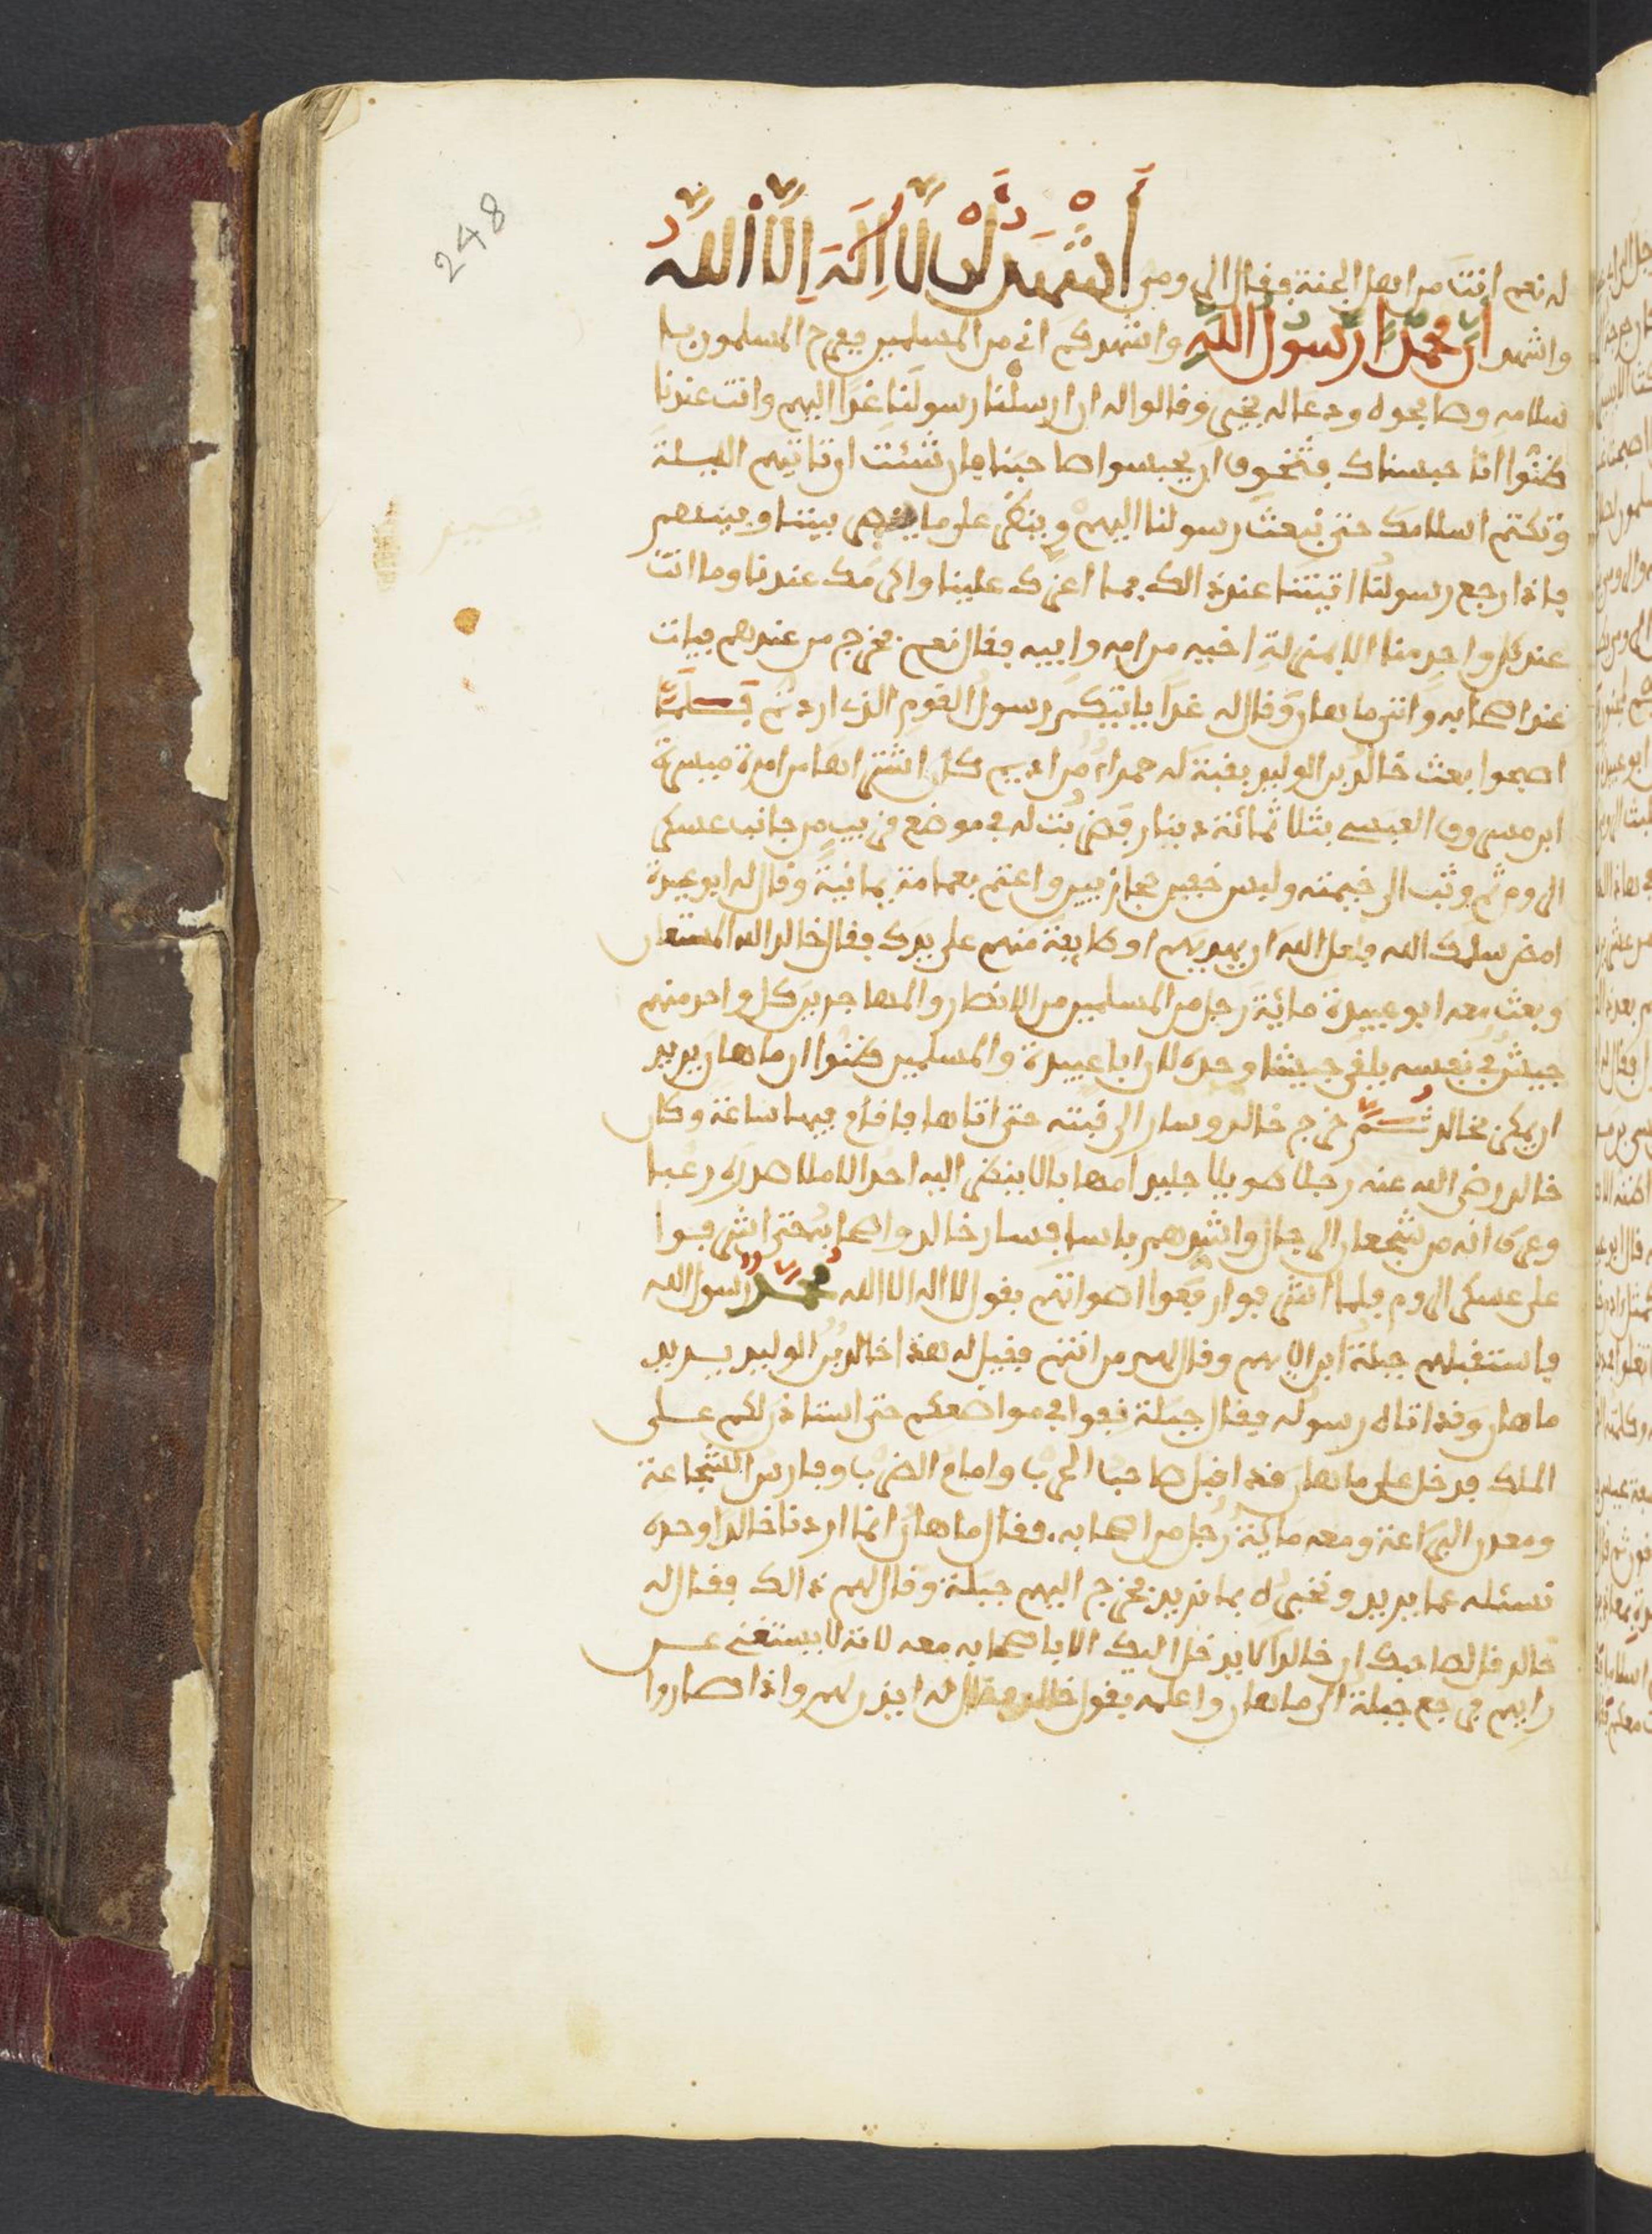 248
له نعم انت من اهل الجنة فقال الرومي أَشْهَدُ أَنْ لَّا إِلَهَ إِلَّا اللَّهُ
واشهد أَنَّ مُحَمَّدًا رَّسُولُ اللَّهِ واشهدكم اني من المسلمين ففرح المسلمون با
سلامه وصافحوه ودعا له بخير وقالوا له ان ارسلنا رسولنا غدا اليهم وانت عندنا
ظنوا انا حبسناك فنتخوف ان يحبسوا صاحبنا فان شئت ان تاتيهم الليلة
وتكتم اسلامك حتى نبعث رسولنا اليهم وينظر على ما ينصرم بيننا وبينهم
فاذا رجع رسولنا اتيتنا عند ذالك فما اعزك علينا واكرمك عندنا وما انت
عند كل واحد منا الا بمنزلة اخيه من امه وابيه فقال نعم فخرج من عندهم فبات
عند اصحابه واتى ماهان وقال له غدا ياتيكم رسول القوم الذي اردتم فَلَمَّا
اصبحوا بعث خالد بن الوليد بقبة له حمراء من اديم كان اشتراها من امرة ميسرة
ابن مسروق العبسي بثلاثمائة دينار فضربت له في موضع قريب من جانب عسكر
الروم ثم وثب الى خيمته ولبس خفين حجازيين واعتم بعمامة يمانية وقال له ابو عبيدة
امض سلمك الله فلعل الله ان يهديهم او طايفة منهم على يدك فقال خالد الله المستعان
وبعث معه ابو عبيدة مائة رجل من المسلمين من الانصار والمهاجرين كل واحد منهم
جيش في نفسه يلقى جيشا وحده لان ابا عبيدة والمسلمين ظنوا ان ماهان يريد
ان يمكر بخالد ثُمَّ خرج خالد وسار الى قبته حتى اتاها فاقام فيها ساعة وكان
خالد رضي الله عنه رجلا طويلا جليدا مهابا لا ينظر اليه احد الا ملا صدره رعبا
وعرف انه من شجعان الرجال واشدهم باسا فسار خالد واصحابه حتى اشرفوا
على عسكر الروم فلما اشرفوا رفعوا اصواتهم بقول لا اله الا الله محمد رسول الله
فاستقبلهم جبلة ابن الايهم وقال لهم من انتم فقيل له هذا خالد بن الوليد يريد
ماهان وقد اتاه رسوله فقال جبلة قفوا في مواضعكم حتى استاذن لكم على
الملك فدخل على ماهان قد اقبل صاحب الحرب وامام الضرب وفارس الشجاعة
ومعدن البراعة ومعه مائة رجل من اصحابه. فقال ماهان انما اردنا خالدا وحده
نسئله عما يريد ونخبره بما نريد فخرج اليهم جبلة وقال لهم ذالك فقال له
خالد قل لصاحبك ان خالدا لا يدخل اليك الا باصحابه معه لانه لا يستغني عن
رايهم فرجع جبلة الى ماهان واعلمه بقول خالد فقال له ايذن لهم واذا صاروا